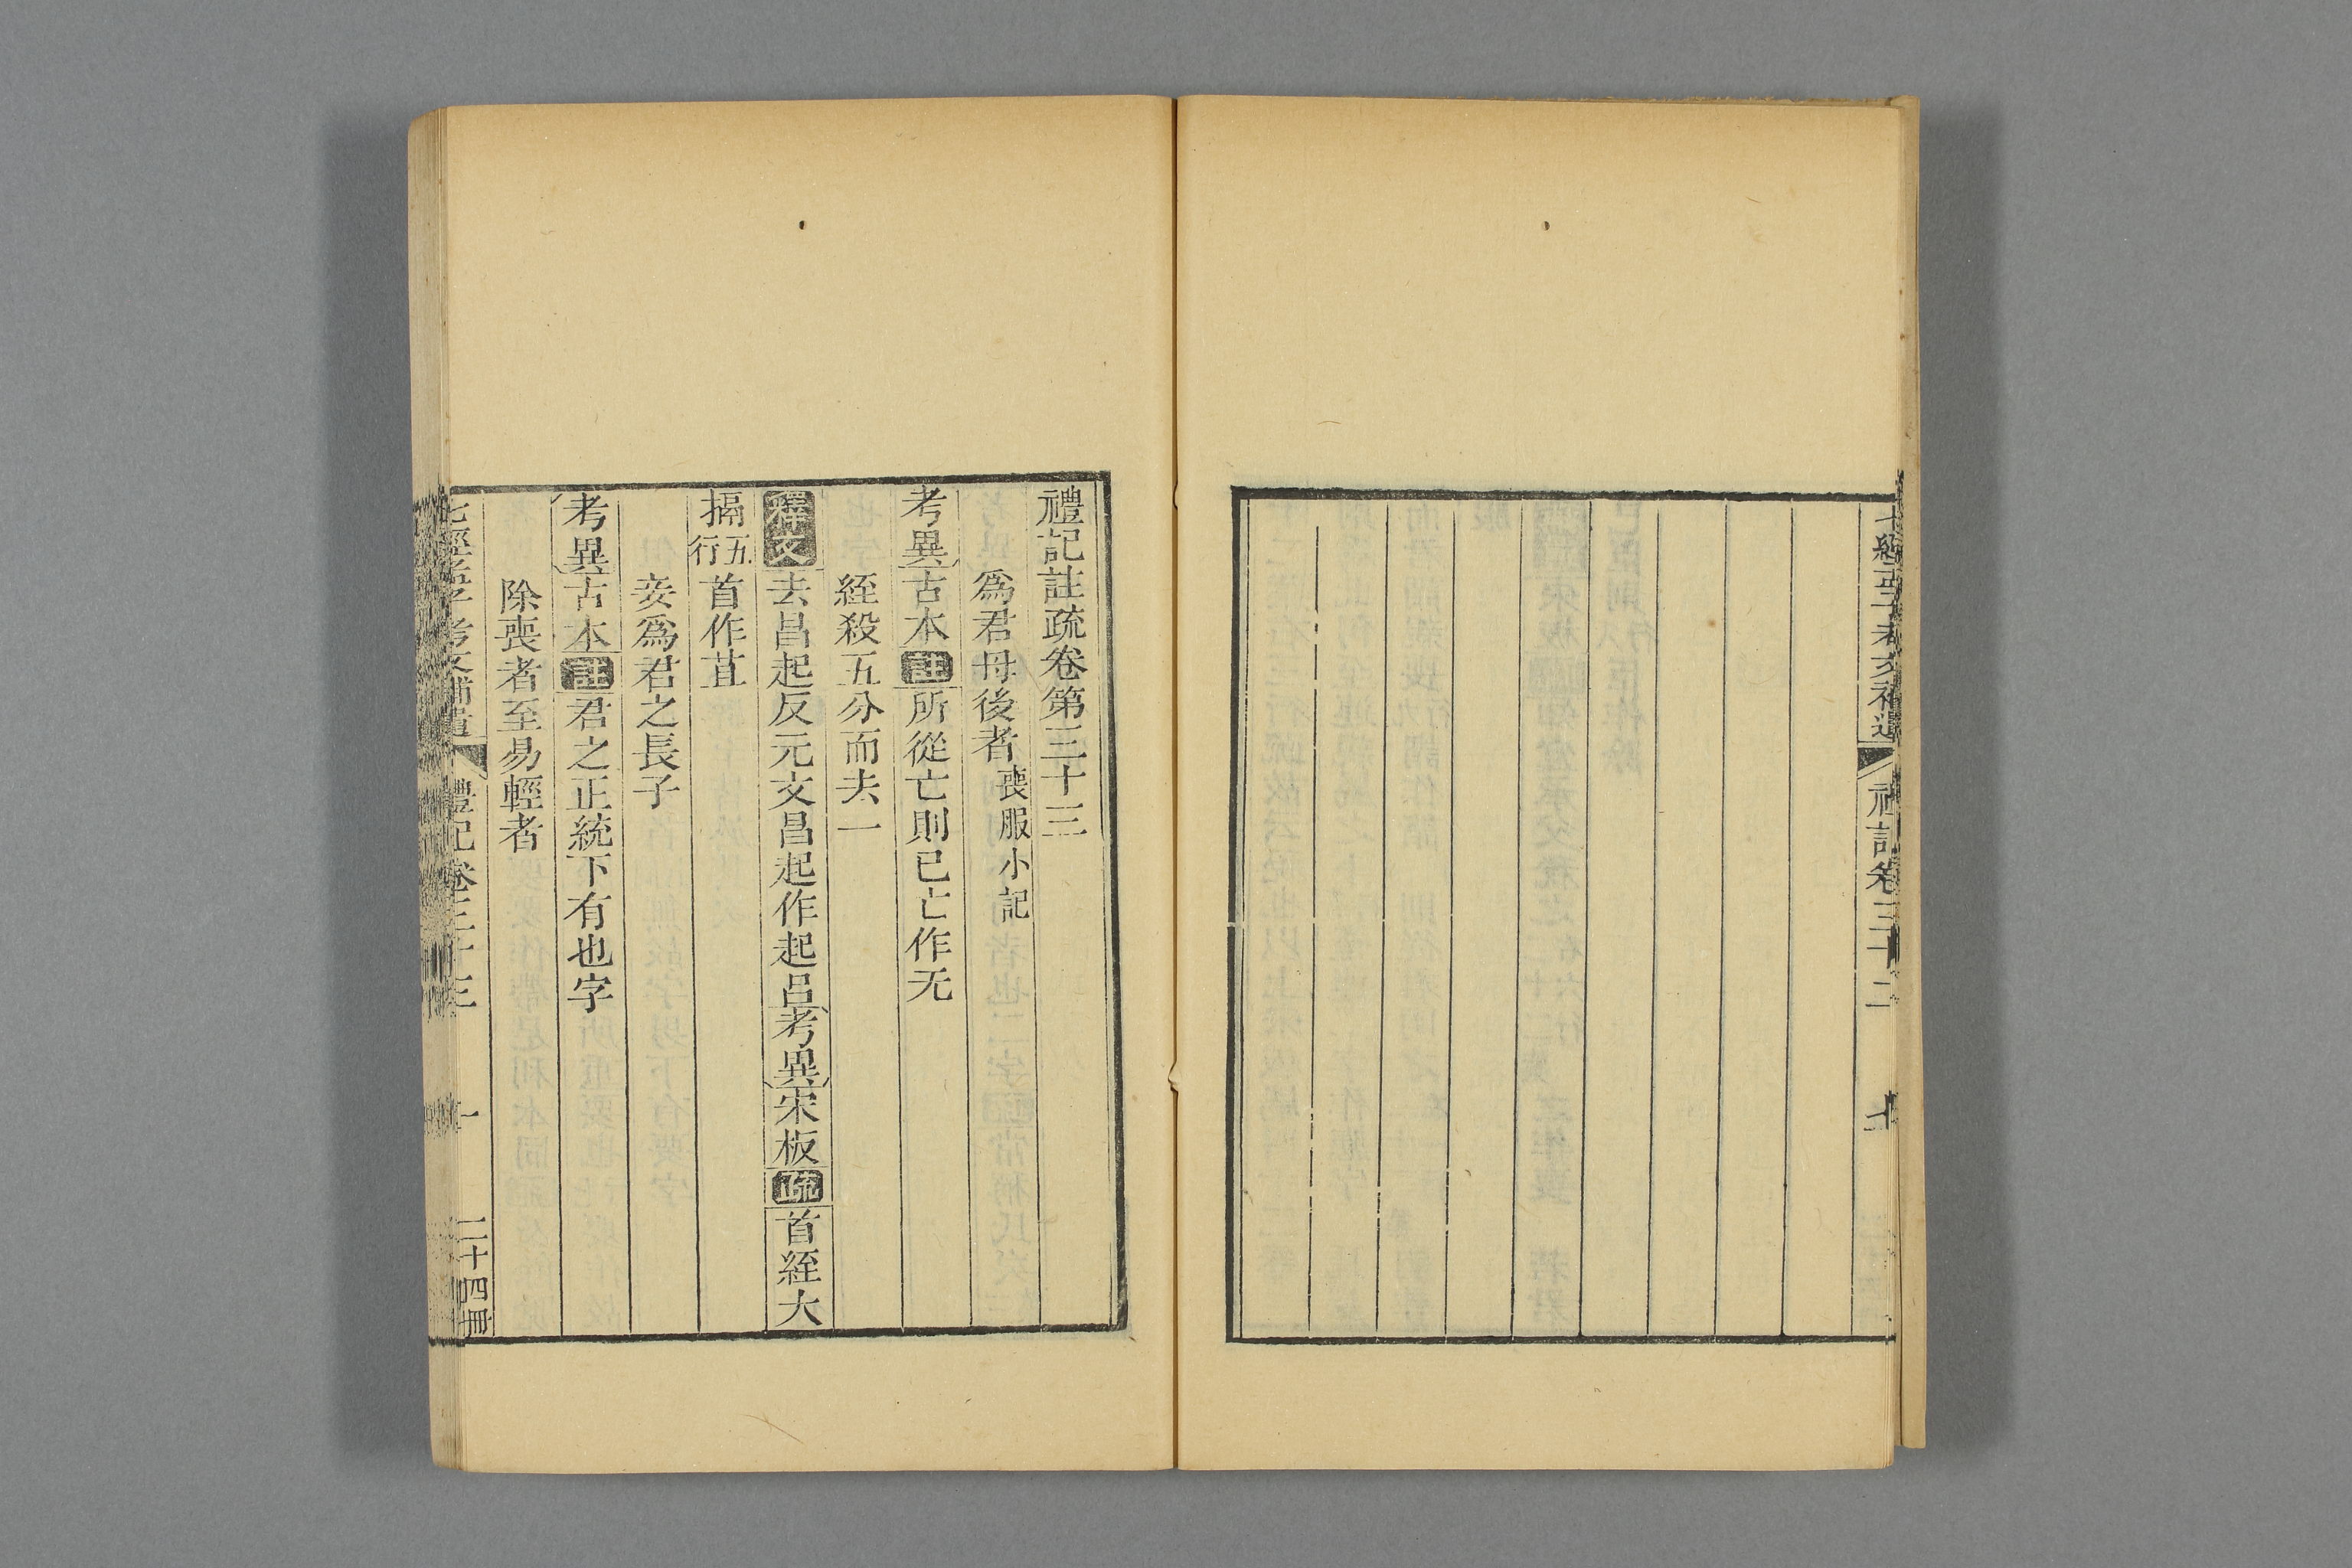 禮記卷三十二
禮記註疏卷第三十三
爲君母後者喪服小記
考異古本註所從亡則已亡作无
絰殺五分而去一
釋文去昌起反元文昌起作起呂考異宋板疏首絰大
搹五行首作苴
妾爲君之長子
考異古本註君之正統下有也字
除喪者至易輕者
七經孟子考文補遺 禮記卷三十三 一 二十四冊